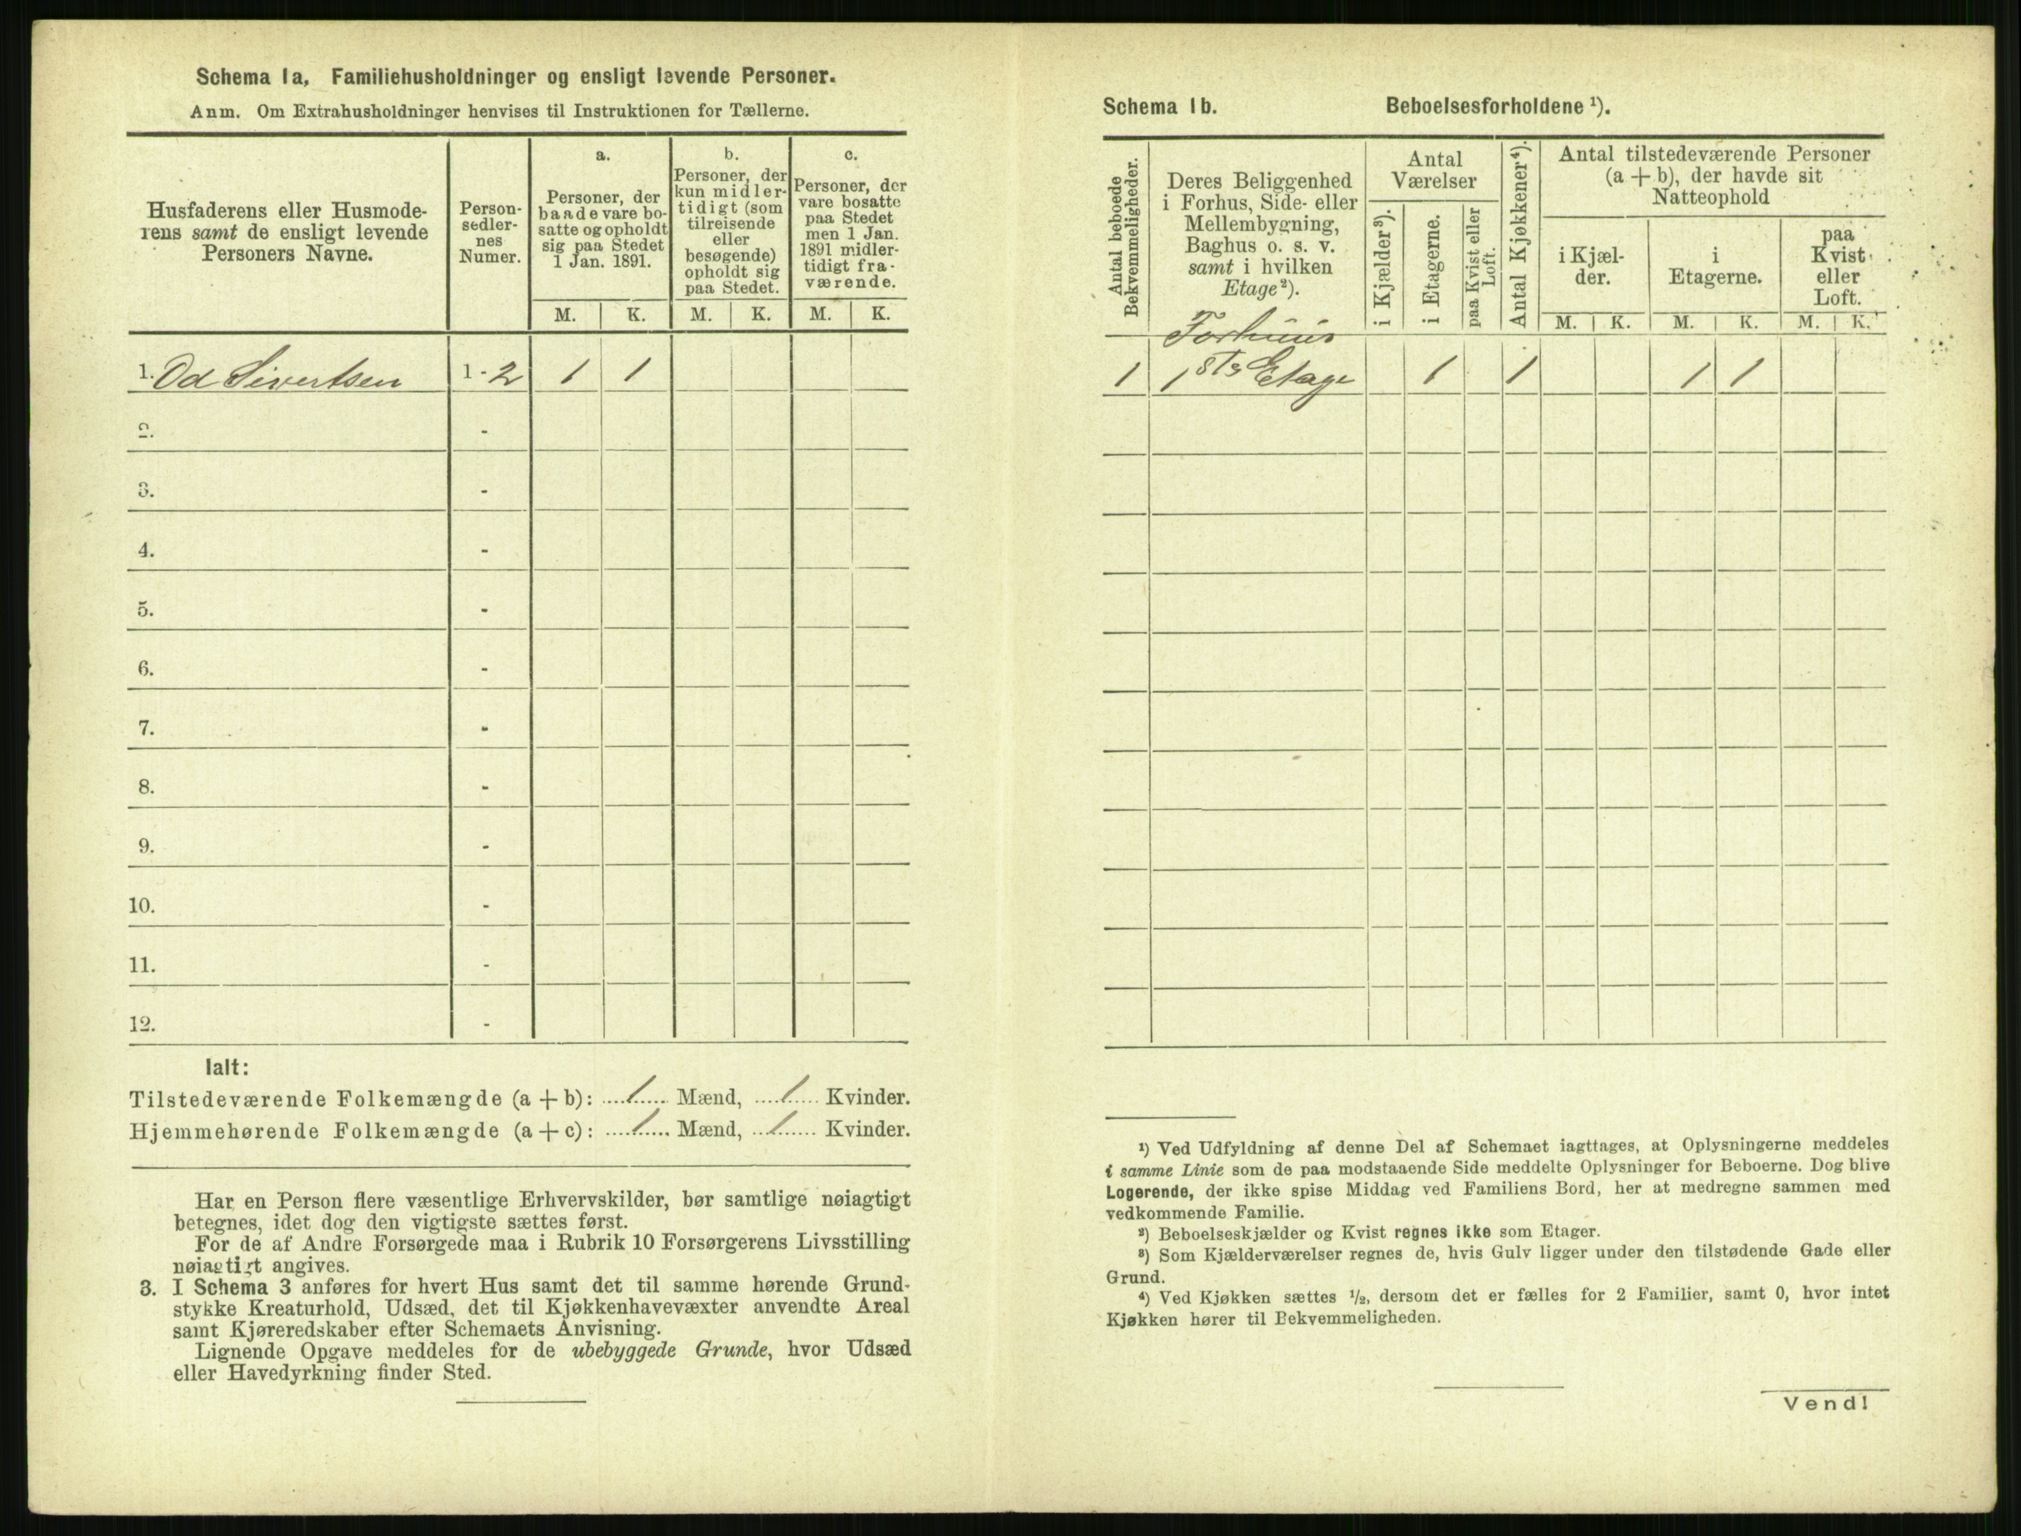 Schema 1a, Familiehusholdninger og ensligt levende Personer.
Anm. Om Extrahusholdninger henvises til Instruktionen for Tællerne.
Husfaderens eller Husmode-
rens samt de ensligt levende
Personers Navne.
Person-
sedler-
nes
Numer.
a.
Personer, der
baade vare bo-
satte og opholdt
sig paa Stedet
1 Jan. 1891.
b.
Personer, der
kun midler-
tidigt (som
tilreisende
eller
besøgende)
opholdt sig
paa Stedet.
c.
Personer, der
vare bosatte
paa Stedet
men 1 Jan.
1891 midler-
tidigt fra-
værende.
M. K. M. K. M. K.
1. Od Sivertsen 1 - 2 1 1
2. -
3. -
4. -
5. -
6. -
7. -
8. -
9. -
10. -
11. -
12. -
Ialt:
Tilstedeværende Folkemængde (a + b): 1 Mænd, 1 Kvinder.
Hjemmehørende Folkemængde (a + c): 1 Mænd, 1 Kvinder.
Har en Person flere væsentlige Erhvervskilder, bør samtlige nøiagtigt
betegnes, idet dog den vigtigste sættes først.
For de af Andre Forsørgede maa i Rubrik 10 Forsørgerens Livsstilling
nøiagtigt angives.
3. I Schema 3 anføres for hvert Hus samt det til samme hørende Grund-
stykke Kreaturhold, Udsæd, det til Kjøkkenhavevæxter anvendte Areal
samt Kjøreredskaber efter Schemaets Anvisning.
Lignende Opgave meddeles for de ubebyggede Grunde, hvor Udsæd
eller Havedyrkning finder Sted.
Schema 1b. Beboelsesforholdene ¹).
Antal beboede
Bekvemmeligheder.
Deres Beliggenhed
i Forhus, Side- eller
Mellembygning,
Baghus o. s. v.
samt i hvilken
Etage²).
Antal
Værelser
i Kjælder³).
i Etagerne.
paa Kvist eller
Loft.
Antal Kjøkkener⁴).
Antal tilstedeværende Personer
(a + b), der havde sit
Natteophold
i Kjæl-
der.
i
Etagerne.
paa
Kvist
eller
Loft.
M. K. M. K. M. K.
Forhuus
1 1ste Etage 1 1 1 1
¹) Ved Udfyldning af denne Del af Schemaet iagttages, at Oplysningerne meddeles
i samme Linie som de paa modstaaende Side meddelte Oplysninger for Beboerne. Dog blive
Logerende, der ikke spise Middag ved Familiens Bord, her at medregne sammen med
vedkommende Familie.
²) Beboelseskjælder og Kvist regnes ikke som Etager.
³) Som Kjælderværelser regnes de, hvis Gulv ligger under den tilstødende Gade eller
Grund.
⁴) Ved Kjøkken sættes ½, dersom det er fælles for 2 Familier, samt 0, hvor intet
Kjøkken hører til Bekvemmeligheden.
Vend!